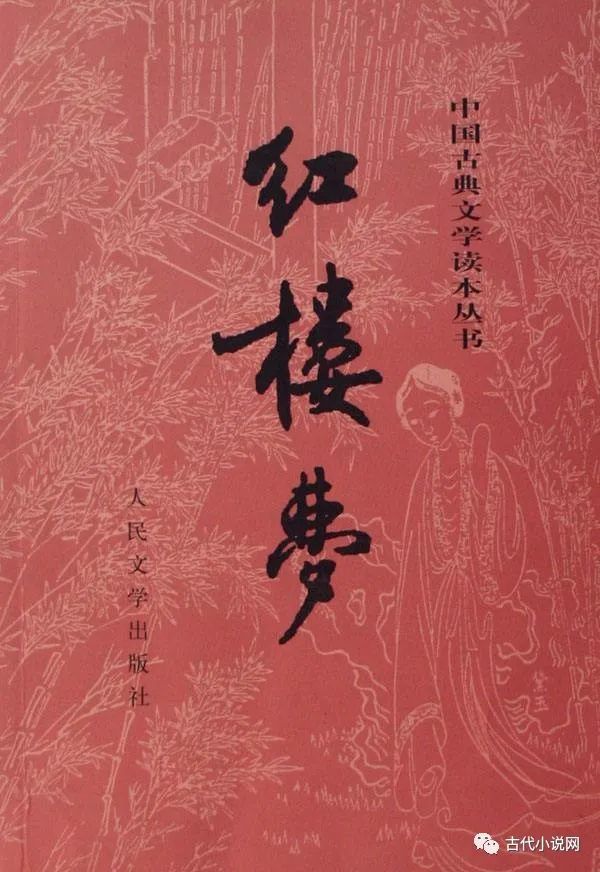 中国古典文学读本丛书
红楼梦
人民文学出版社
黛玉
古代小说网